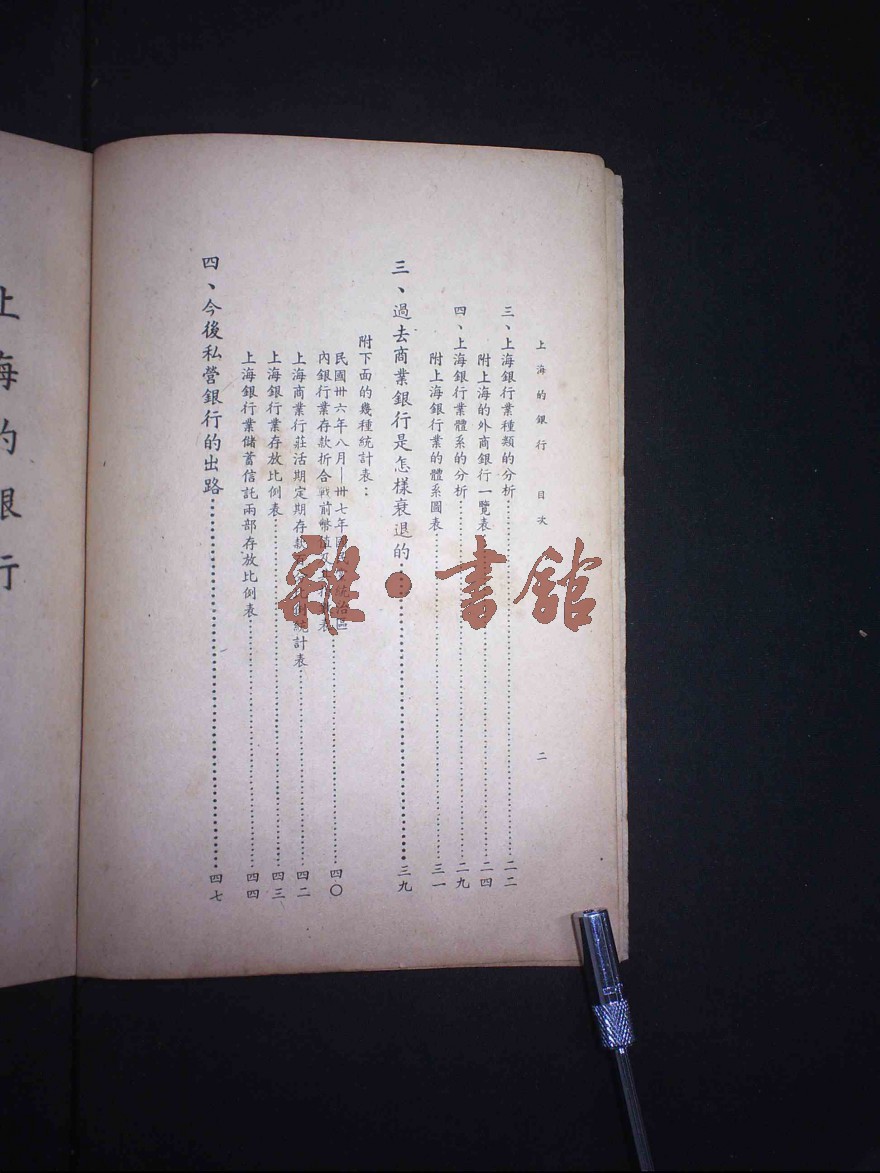 上海的銀行　目次　二
三、上海銀行業種類的分析……二二
附上海的外商銀行一覽表……二四
四、上海銀行業體系的分析……二九
附上海銀行業的體系圖表……三一
三、過去商業銀行是怎樣衰退的……三九
附下面的幾種統計表：
民國卅六年八月—卅七年國 統治區
內銀行業存款折合戰前幣值 表……四〇
上海商業行莊活期定期存款 統計表……四二
上海銀行業存放比例表……四三
上海銀行業儲蓄信託兩部存放比例表……四四
四、今後私營銀行的出路……四七
上海的銀行
雜·書館